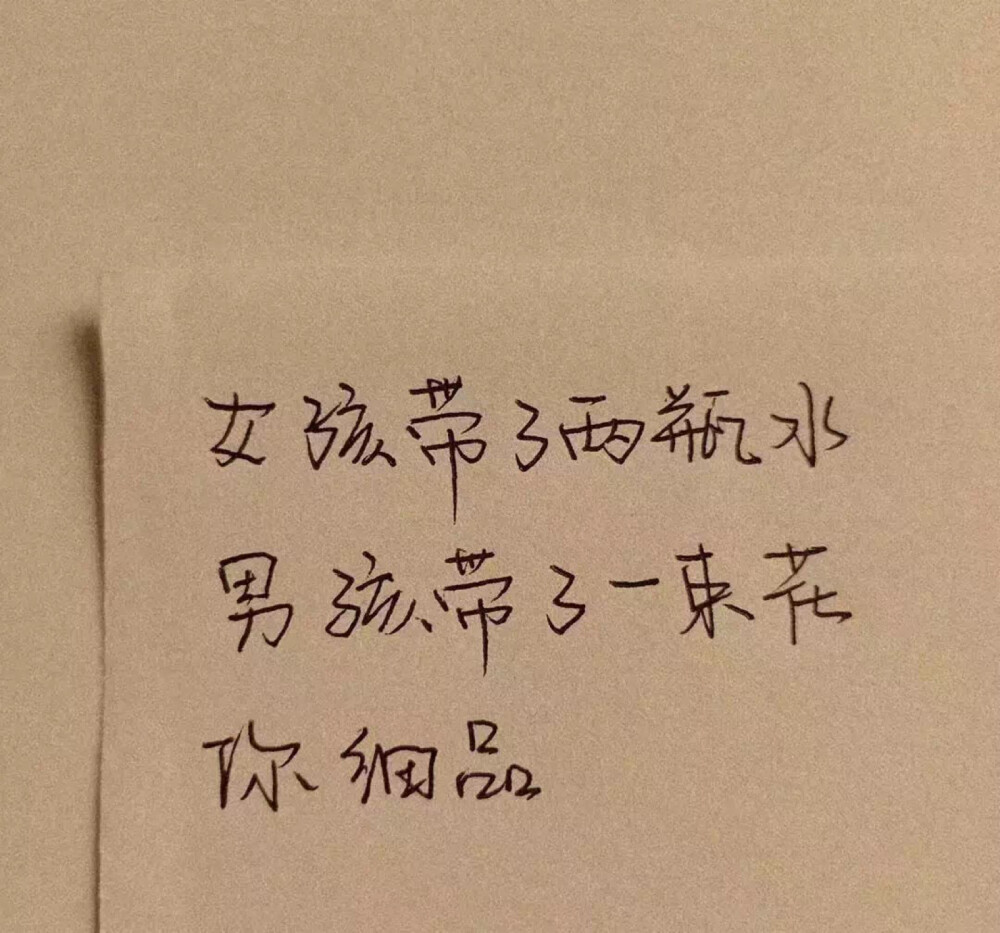 女孩带了两瓶水
男孩带了一束花
你细品